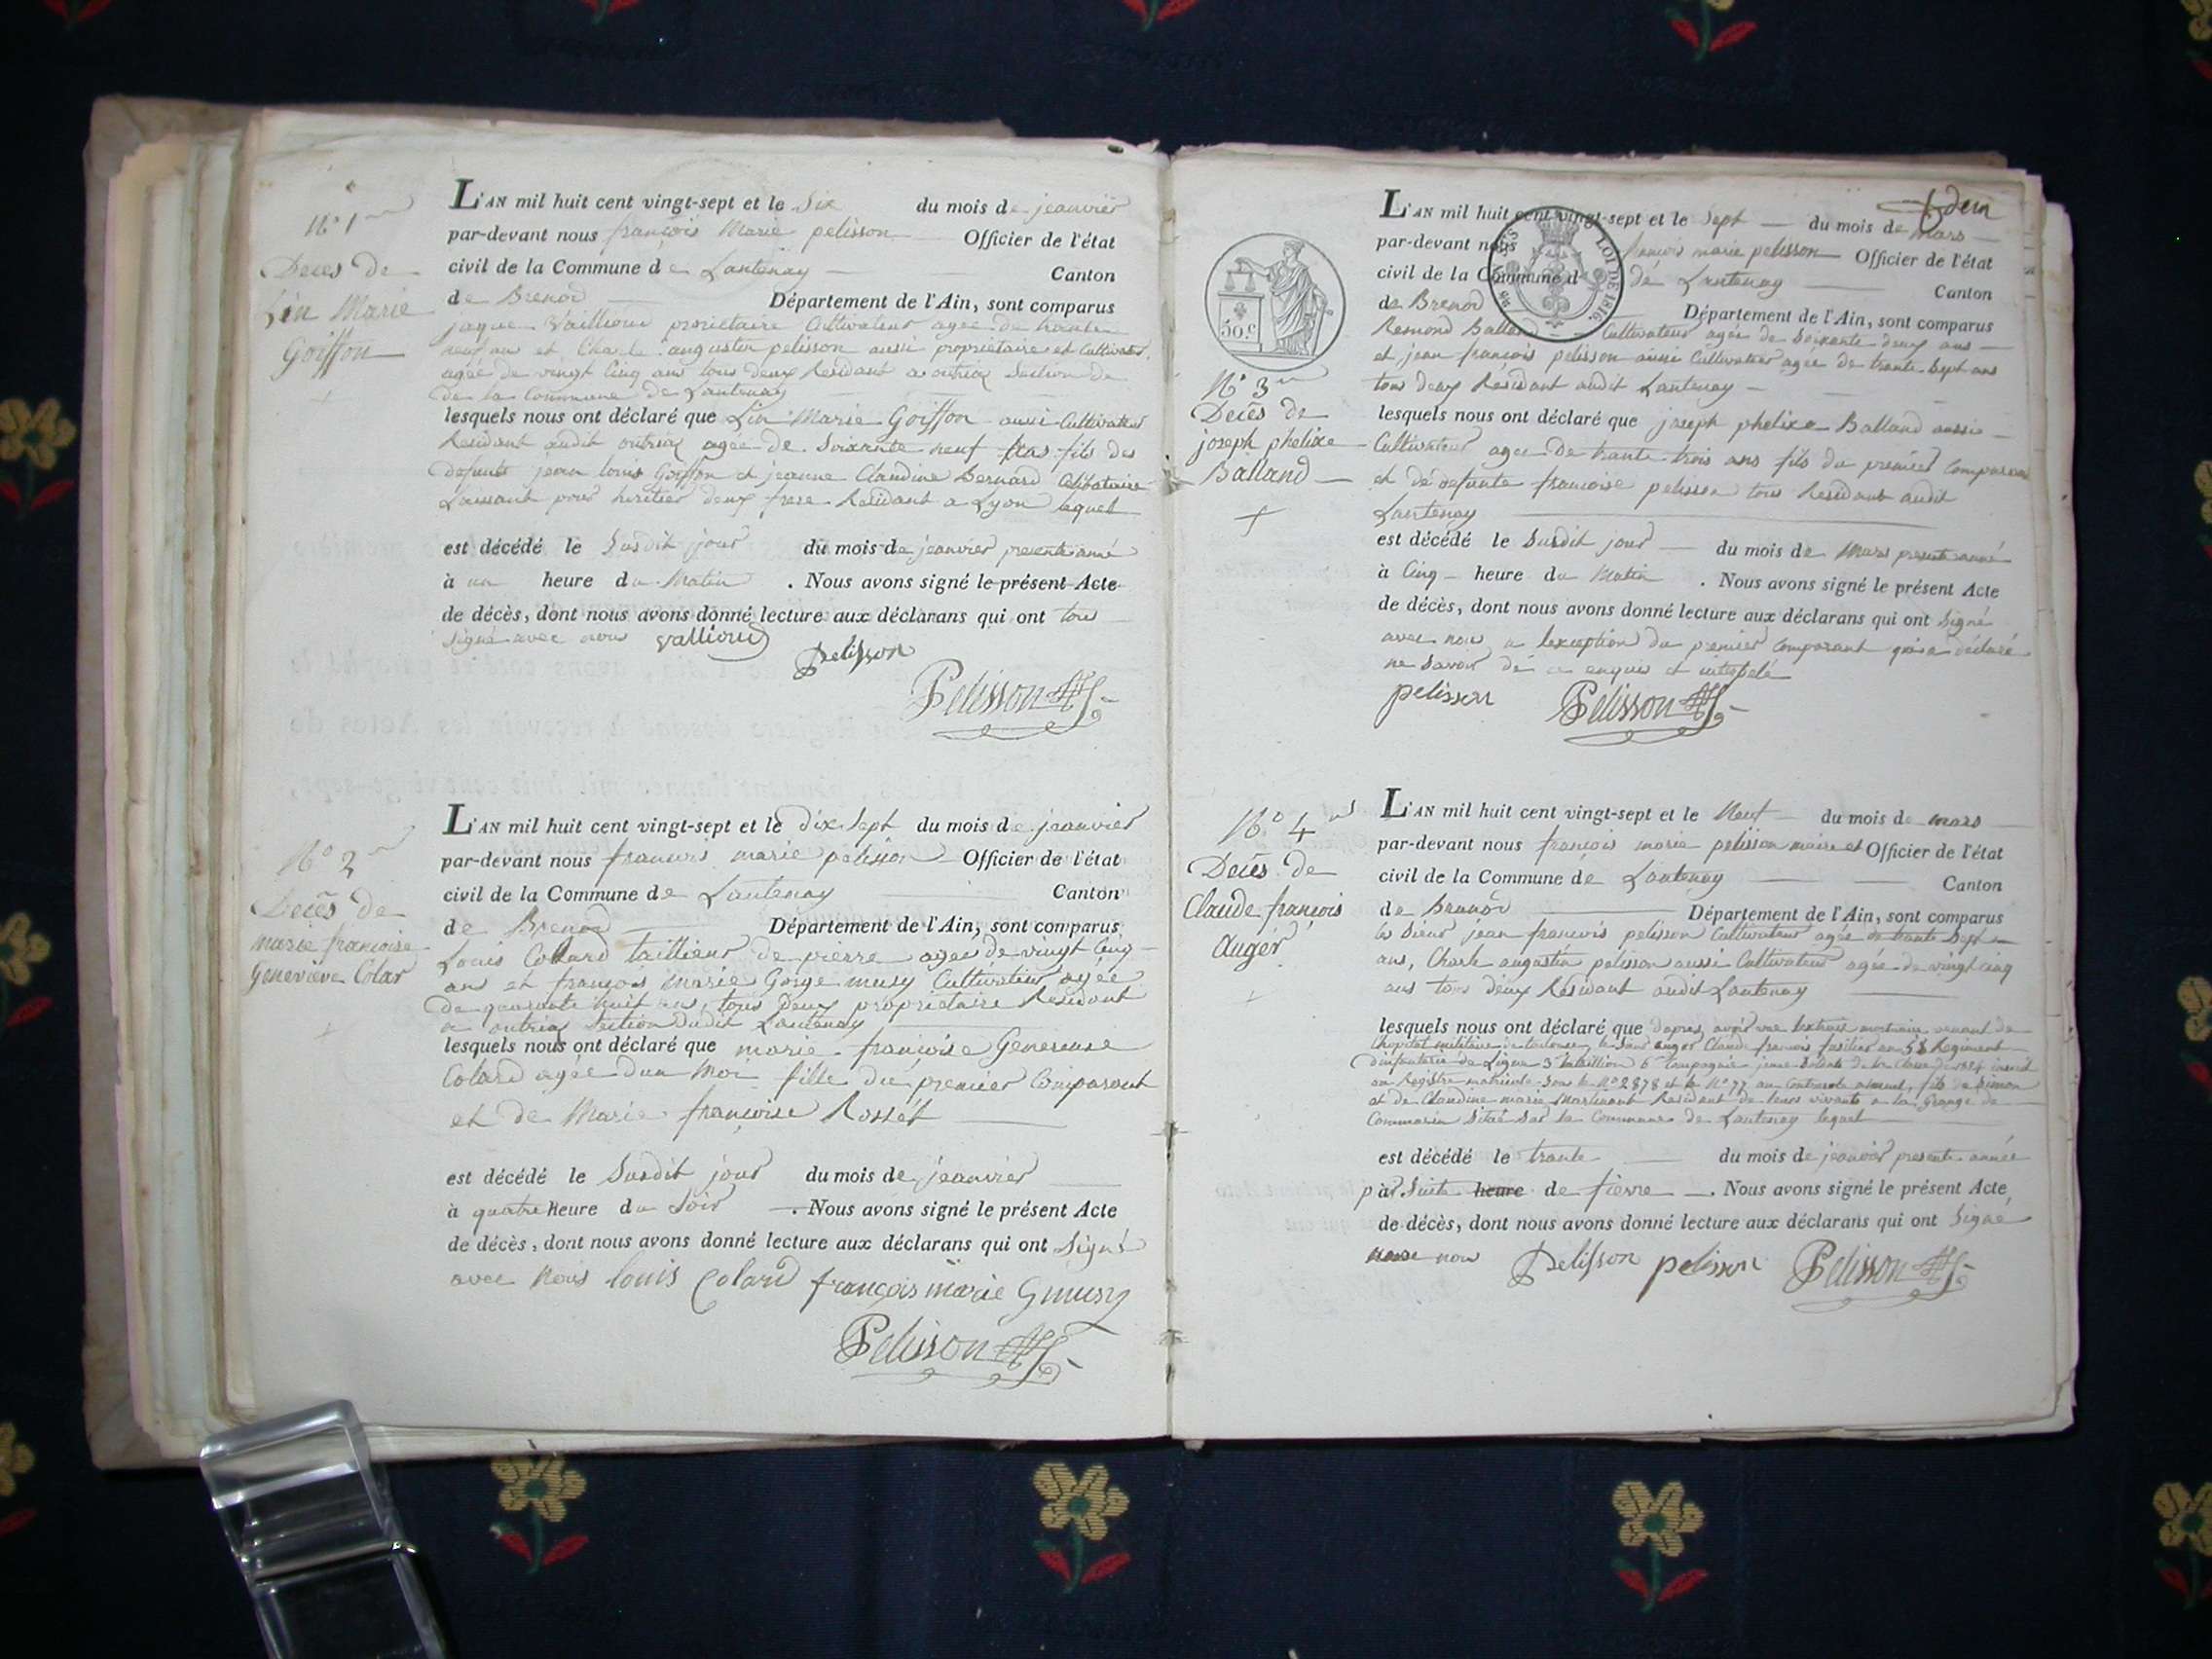 N° 1
Deces de
Lin Marie
Goiffon
L'AN mil huit cent vingt-sept et le Six du mois de jeanvier
par-devant nous françois Marie pelisson Officier de l'état
civil de la Commune de Lantenay Canton
de Brenod Département de l'Ain, sont comparus
jaque Vailloud proriétaire Cultivateur agée de trante
neuf ans et Charle augustin pelisson aussi propriétaire et Cultivateur
agée de vingt Cinq ans tous deux Residant a outriaz Section de
de la Commune de Lantenay
lesquels nous ont déclaré que Lin Marie Goiffon aussi Cultivateur
Residant audit outriaz agée de Soixante neuf fils des
defunts jean louis Goiffon et jeanne Claudine Bernard Celibataire
Laissant pour heritier deux frere Residant a Lyon lequel
est décédé le Susdit jour du mois de jeanvier presente anné
à un heure du Matin . Nous avons signé le présent Acte
de décès, dont nous avons donné lecture aux déclarans qui ont tous
signé avec nous Vallioud
Pelisson
Pelisson
N° 2
Decès de
marie françoise
Geneviève Colar
L'AN mil huit cent vingt-sept et le dix Sept du mois de jeanvier
par-devant nous francois marie pelisson Officier de l'état
civil de la Commune de Lantenay Canton
de Brenod Département de l'Ain, sont comparus
Louis Colard taillieur de pierre agée de vingt Cinq
ans et françois marie Gorge musy Cultivateur agée
de quarante huit ans, tous deux propriétaire Residant
a outriaz Section dudit Lantenay
lesquels nous ont déclaré que marie françoise Genereuse
Colard agée d'un Moi fille du premier Comparant
et de Marie françoise Rosset
est décédé le Susdit jour du mois de jeanvier
à quatre heure du Soir . Nous avons signé le présent Acte
de décès, dont nous avons donné lecture aux déclarans qui ont Signé
avec Nous louis Colard françois marie Gmusy
Pelisson
LOI DE 1816.
50 c
N° 3
Decès de
joseph phelixe
Balland
L'AN mil huit cent vingt-sept et le Sept du mois de mars
par-devant nous françois marie pelisson Officier de l'état
civil de la Commune d de Lantenay Canton
de Brenod Département de l'Ain, sont comparus
Remond Balland Cultivateur agée de Soixante deux ans
et jean françois pelisson aussi Cultivateur agée de trante Sept ans
tous deux Résidant audit Lantenay
lesquels nous ont déclaré que joseph phelixe Balland aussi
Cultivateur agee de trante trois ans fils du premier Comparant
et de defunte francoise pelisson tous Residant audit
Lantenay
est décédé le Susdit jour du mois de Mars presente anné
à Cinq heure du Matin . Nous avons signé le présent Acte
de décès, dont nous avons donné lecture aux déclarans qui ont Signé
avec nous a lexception du premier Comparant qui a déclaré
ne Savoir de ce enquis et interpelé
pelisson Pelisson
N° 4
Decès de
Claude françois
auger
L'AN mil huit cent vingt-sept et le Neuf du mois de mars
par-devant nous françois marie pelisson maire et Officier de l'état
civil de la Commune de Lantenay Canton
de Brenod Département de l'Ain, sont comparus
les Sieur jean francois pelisson Cultivateur agée de trante Sept
ans, Charle augustin pelisson aussi Cultivateur agée de vingt cinq
ans tous deux Residant audit Lantenay
lesquels nous ont déclaré que dapres avoir une lextrait mortuaire venant de
lhopital militaire de toulouse, le Sieur auger Claude francois fusilier au Regiment
dinfanterie de Ligne 3e bataillion 6e Compagnie jeune Soldat de la Classe de 1824 inscrit
au Registre matricule Sous le N° 2878 et le N° 77 au Controle annuel, fils de Simon
et de Claudine marie Martinant Residant de leurs vivants a la Grange de
Situé Sur la Commune de Lantenay lequel
est décédé le trante du mois de jeanvier presente année
par Suite heure de fievre . Nous avons signé le présent Acte
de décès, dont nous avons donné lecture aux déclarans qui ont Signé
nous Pelisson pelisson Pelisson